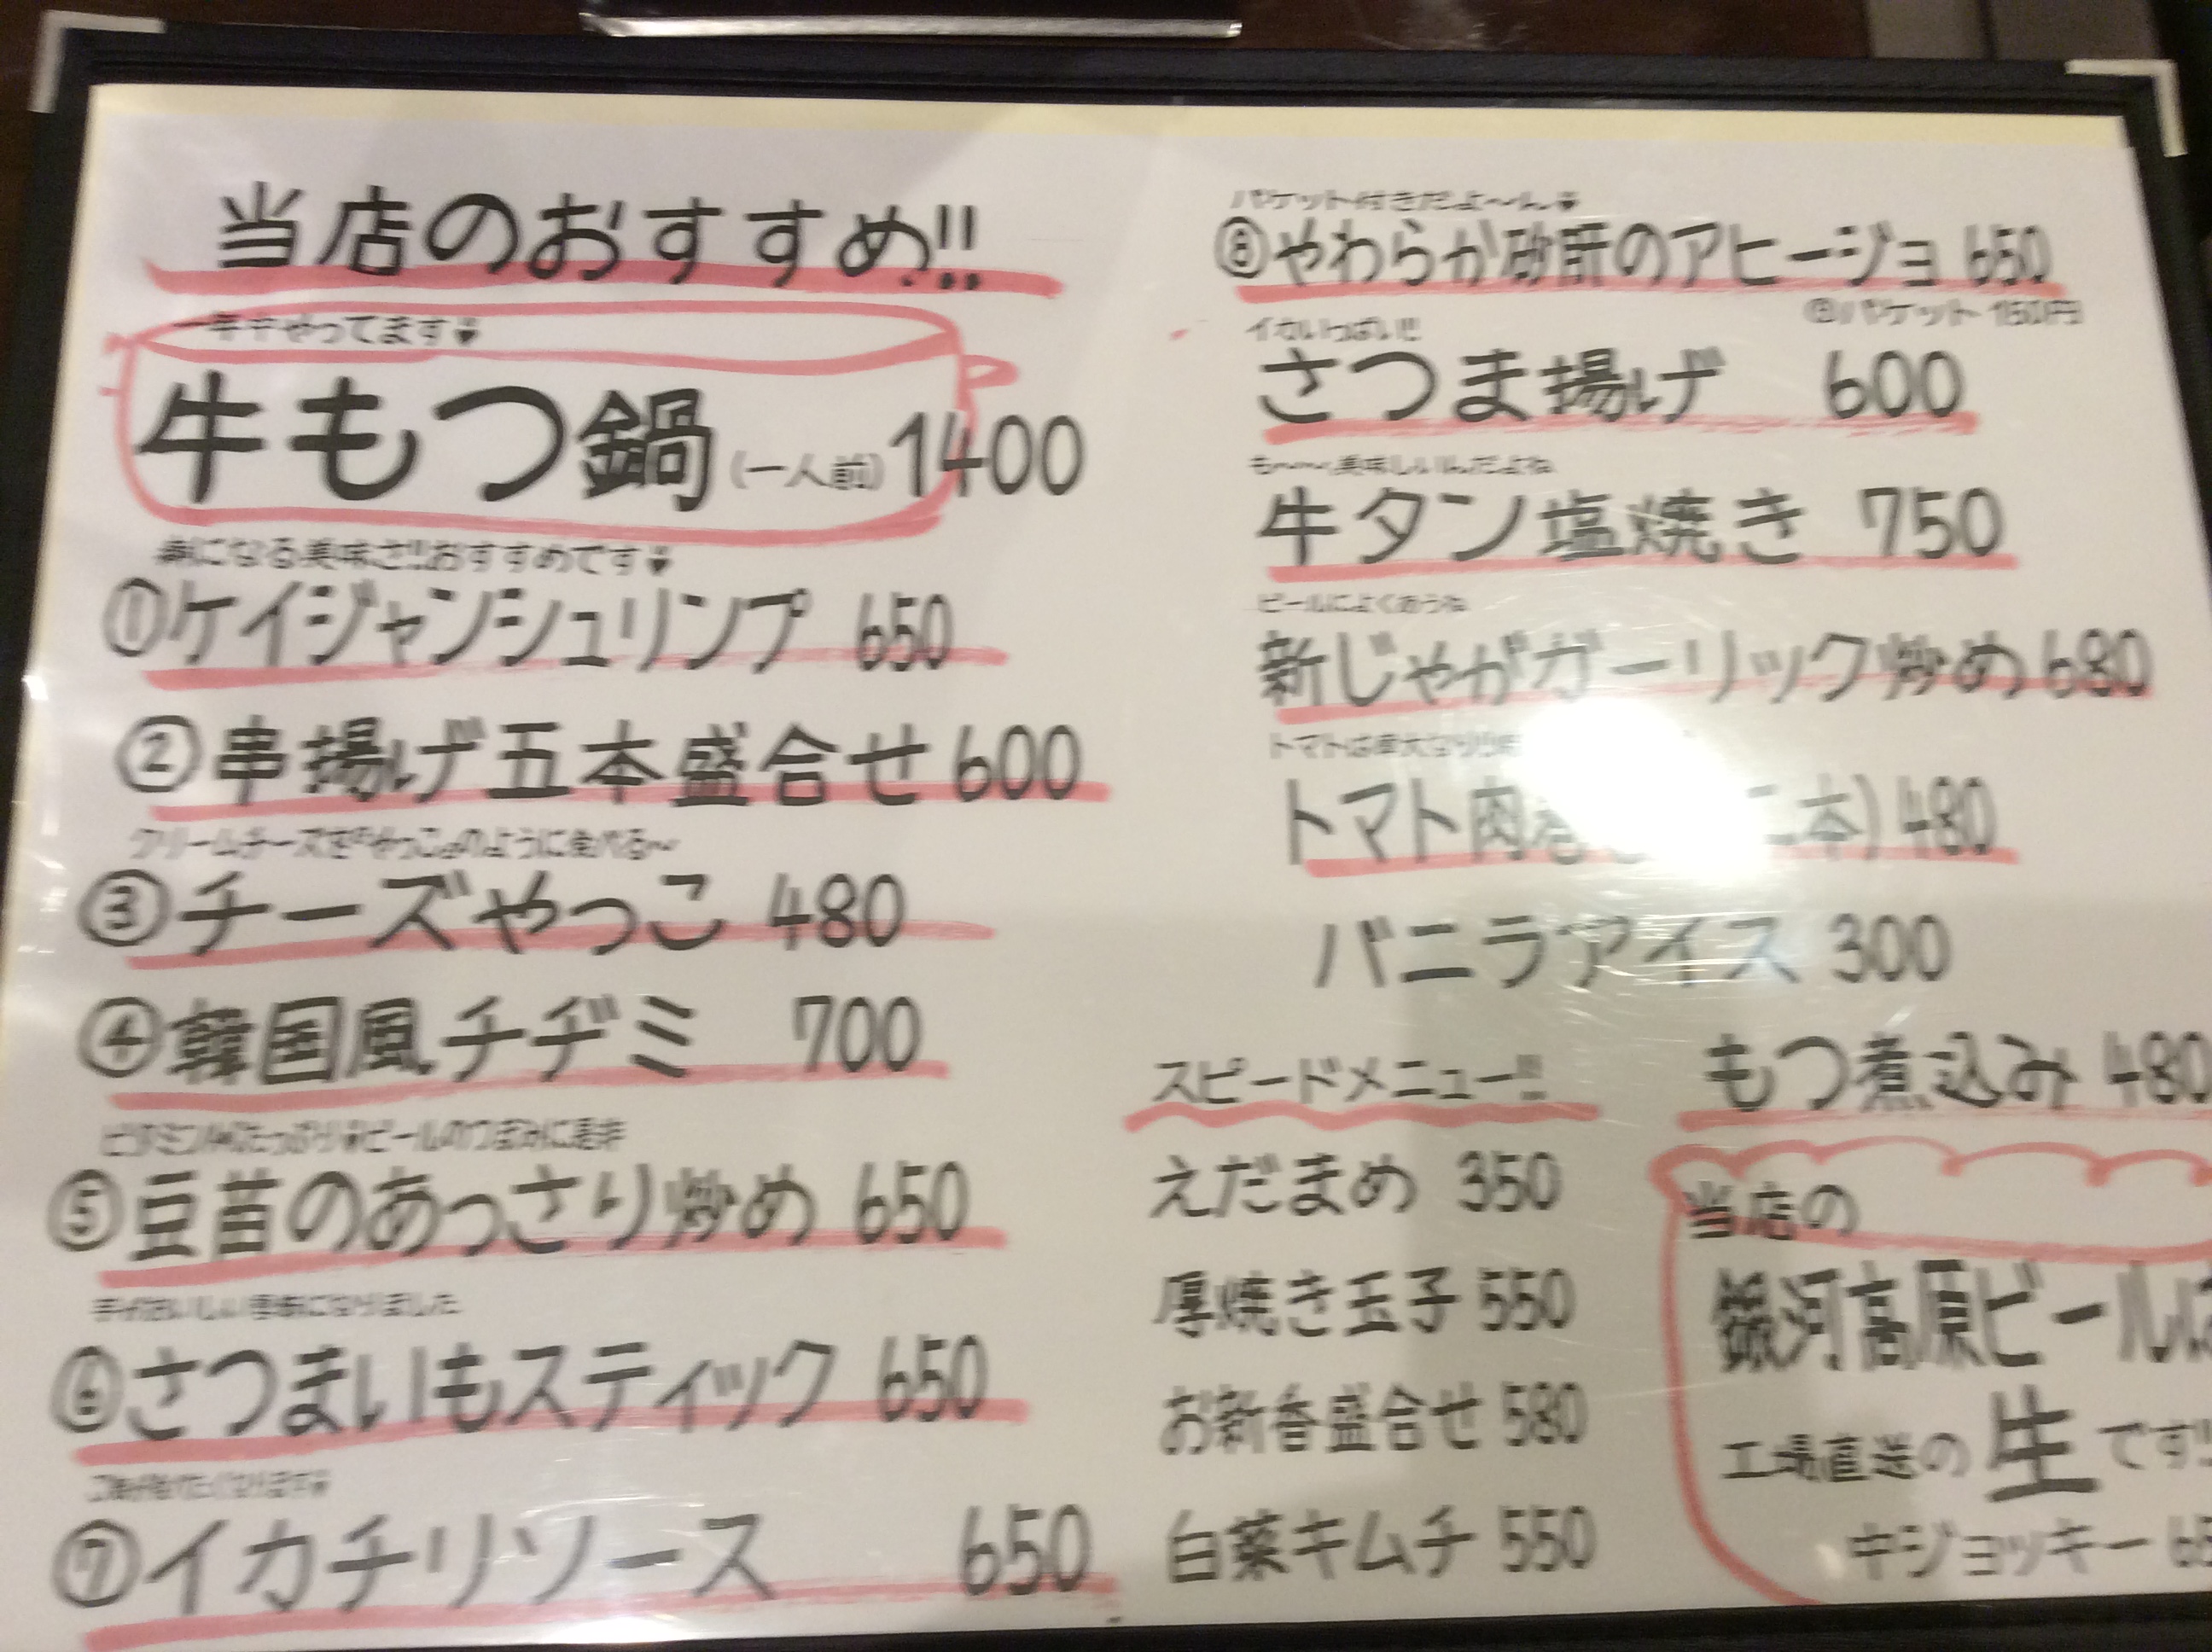 当店のおすすめ!!
一年中やってます
牛もつ鍋(一人前)1400
癖になる美味さ!!おすすめです
①ケイジャンシュリンプ 650
②串揚げ五本盛合せ 600
クリームチーズを『やっこ』のように食べる〜
③チーズやっこ 480
④韓国風チヂミ 700
たっぷり ビールのつまみに是非
⑤豆苗のあっさり炒め 650
おいしい季節になりました
⑥さつまいもスティック 650
⑦イカチリソース 650
バケット付きだよ〜ん
⑧やわらか砂肝のアヒージョ 650
バケット 150円
イカいっぱい!!
さつま揚げ 600
も〜〜美味しいんだよね
牛タン塩焼き 750
ビールによくあうね
新じゃがガーリック炒め 680
トマトは
トマト肉巻 二本) 480
バニラアイス 300
スピードメニュー!!
えだまめ 350
厚焼き玉子 550
お新香盛合せ 580
白菜キムチ 550
もつ煮込み 480
当店の
銀河高原ビールは
工場直送の 生 です!!
中ジョッキー